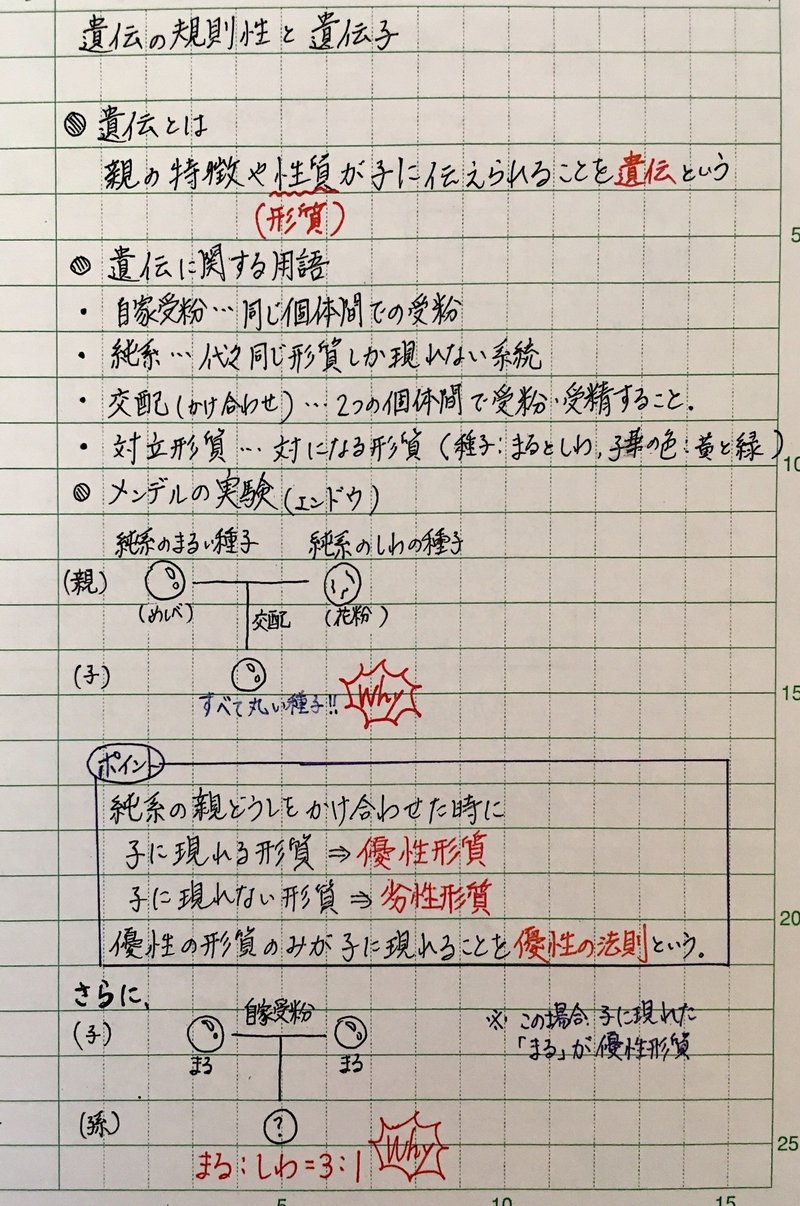 遺伝の規則性と遺伝子
◍ 遺伝とは
親の特徴や性質が子に伝えられることを遺伝という
(形質)
5
◍ 遺伝に関する用語
・ 自家受粉…同じ個体間での受粉
・ 純系…代々同じ形質しか現れない系統
・ 交配(かけ合わせ)…2つの個体間で受粉・受精すること.
・ 対立形質…対になる形質(種子:まるとしわ,子葉の色:黄と緑)
10
◍ メンデルの実験(エンドウ)
純系のまるい種子 純系のしわの種子
(親)
(めしべ) 交配 (花粉)
(子)
すべて丸い種子!! Why
15
ポイント
純系の親どうしをかけ合わせた時に
子に現れる形質⇒優性形質
子に現れない形質⇒劣性形質
20
優性の形質のみが子に現れることを優性の法則という。
さらに、
(子) 自家受粉
まる まる
※ この場合、子に現れた
「まる」が優性形質
(孫) ?
まる:しわ=3:1 Why
25
5 10 15